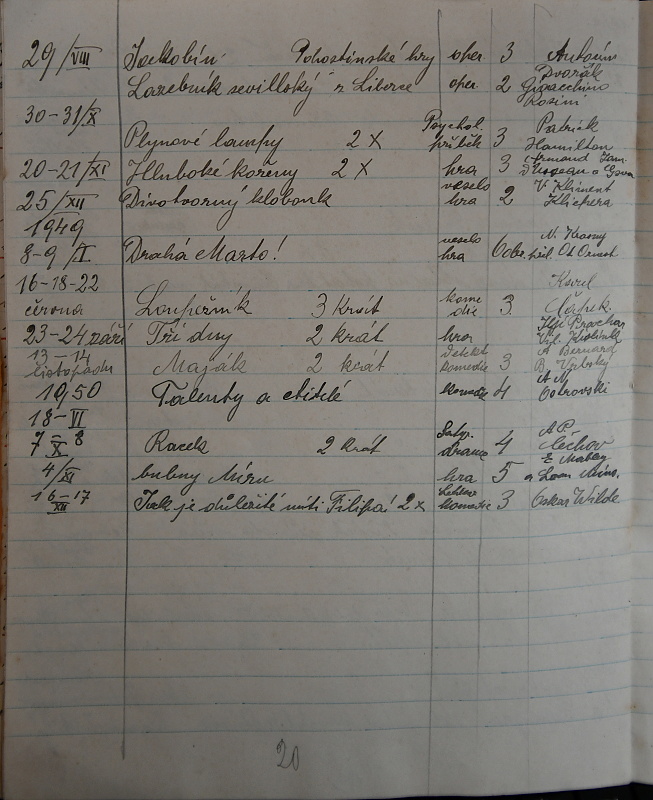 29/VIII Jakobín Pohostinské hry oper 3 Antonín Dvořák
Lazebník sevillský z Liberce oper. 2 Gioacchino Rosini
30-31/X Plynové lampy 2 X Psychol. příběh 3 Patrick Hamilton
20-21/XI Hluboké kořeny 2 X hra 3 Armand
25/XII Divotvorný klobouk veselo hra 2 V. Kliment Klicpera
1949
8-9/I Drahá Marto! veselo hra 6 obr. N. Krasny
16-18-22 června Loupežník 3 krát kome die 3 Karel Čapek
23-24 září Tři dny 2 krát hra
13-14 listopadu Maják 2 krát komedie 3 A Bernard
1950 Talenty a ctitelé komedie 4 A N Ostrovski
18-VI
7-8 X Racek 2 krát drama 4 A P. Čechov
4/XI bubny Míru hra 5
16-17 XII Jak je důležité míti Filipa! 2 x komedie 3 Oskar Wilde
20